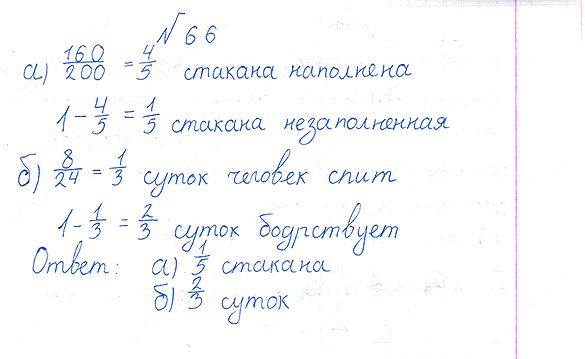 № 66
а) 160/200 = 4/5 стакана наполнена
1 - 4/5 = 1/5 стакана незаполненная
б) 8/24 = 1/3 суток человек спит
1 - 1/3 = 2/3 суток бодрствует
Ответ: а) 1/5 стакана
б) 2/3 суток